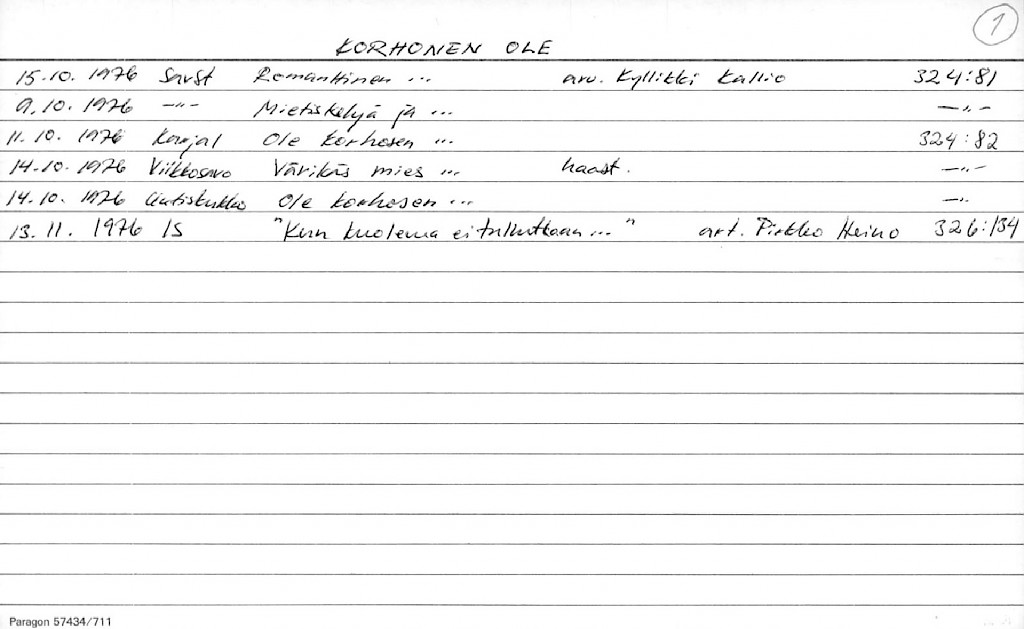 1
KORHONEN OLE
15.10. 1976 SavSt Romanttinen ... arv. Kyllikki Kallio 324:81
9.10. 1976 -"- Mietiskelyä ja ... -"-
11.10. 1976 Karjal Ole Korhosen ... 324:82
14.10. 1976 Viikkosavo Värikäs mies ... haast. -"-
14.10. 1976 Uutiskukko Ole Korhosen ... -"-
13.11. 1976 IS "Kun kuolema ei tulkutkaan ..." art. Pirkko Heino 326:134
Paragon 57434/711